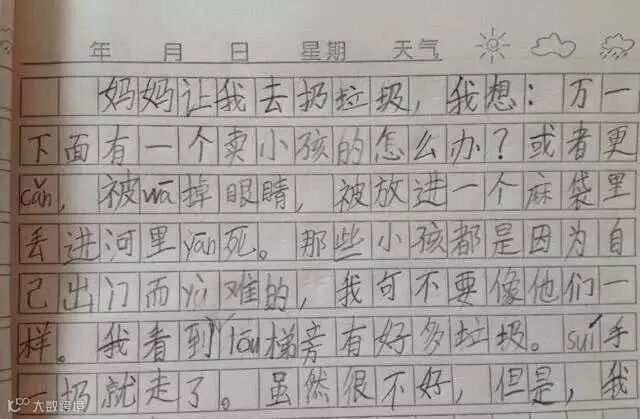 年 月 日 星期 天气
妈妈让我去扔垃圾，我想：万一
下面有一个卖小孩的怎么办？或者更
cǎn，被wā掉眼睛，被放进一个麻袋里
丢进河里yān死。那些小孩都是因为自
己出门而yù难的，我可不要像他们一
样。我看到lóu梯旁有好多垃圾。suí手
一扔就走了。虽然很不好，但是，我
大数跨境